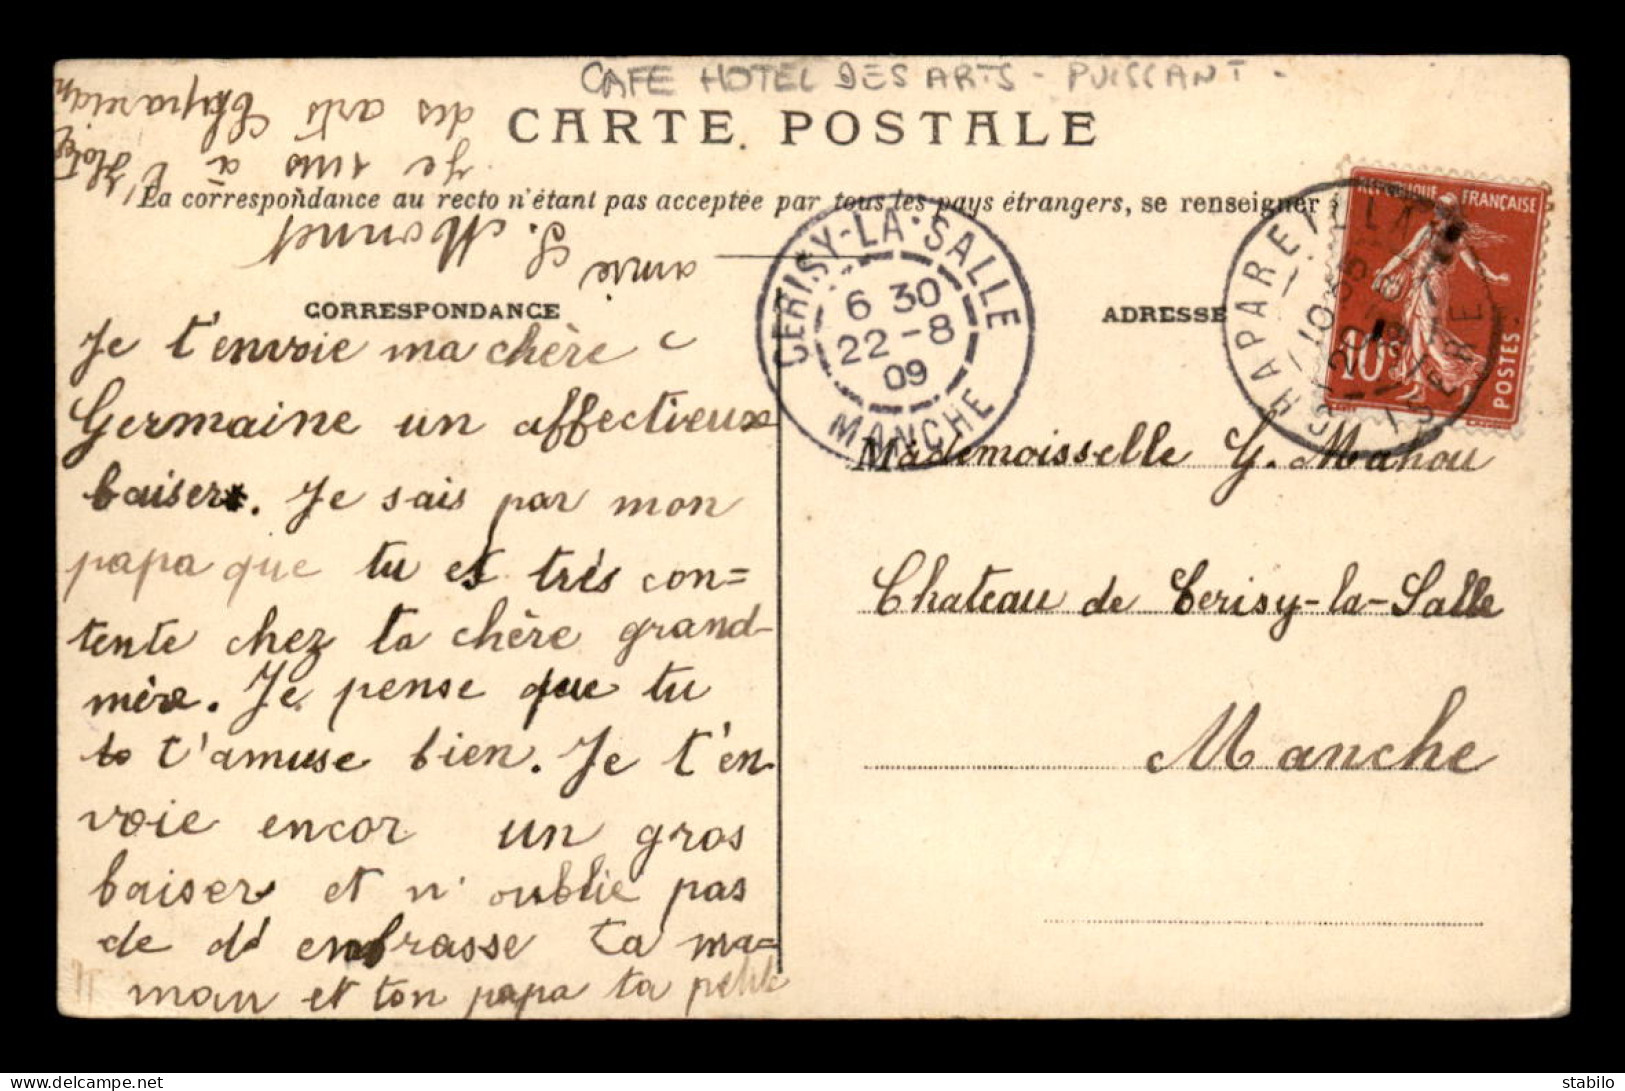 CAFE HOTEL DES ARTS - PUISSANT -
CARTE POSTALE
La correspondance au recto n'étant pas acceptée par tous les pays étrangers, se renseigner
CORRESPONDANCE
ADRESSE
Je t'envoie ma chère
Germaine un affectieux
baiser. Je sais par mon
papa que tu es très con=
tente chez ta chère grand-
mère. Je pense que tu
t'amuse bien. Je t'en
voie encor un gros
baiser et n'oublie pas
de d' enbrasse ta ma=
man et ton papa ta petite
amie
S. Monnet
Je suis à l'Hotel
des arts Chapareillan
CERISY-LA-SALLE
6 30
22-8
09
MANCHE
CHAPAREILLAN
10 35
20
ISERE
REPUBLIQUE FRANÇAISE
10c
POSTES
Mademoisselle G. Mahou
Chateau de Cerisy-la-Salle
Manche
delcampe.net
stabilo